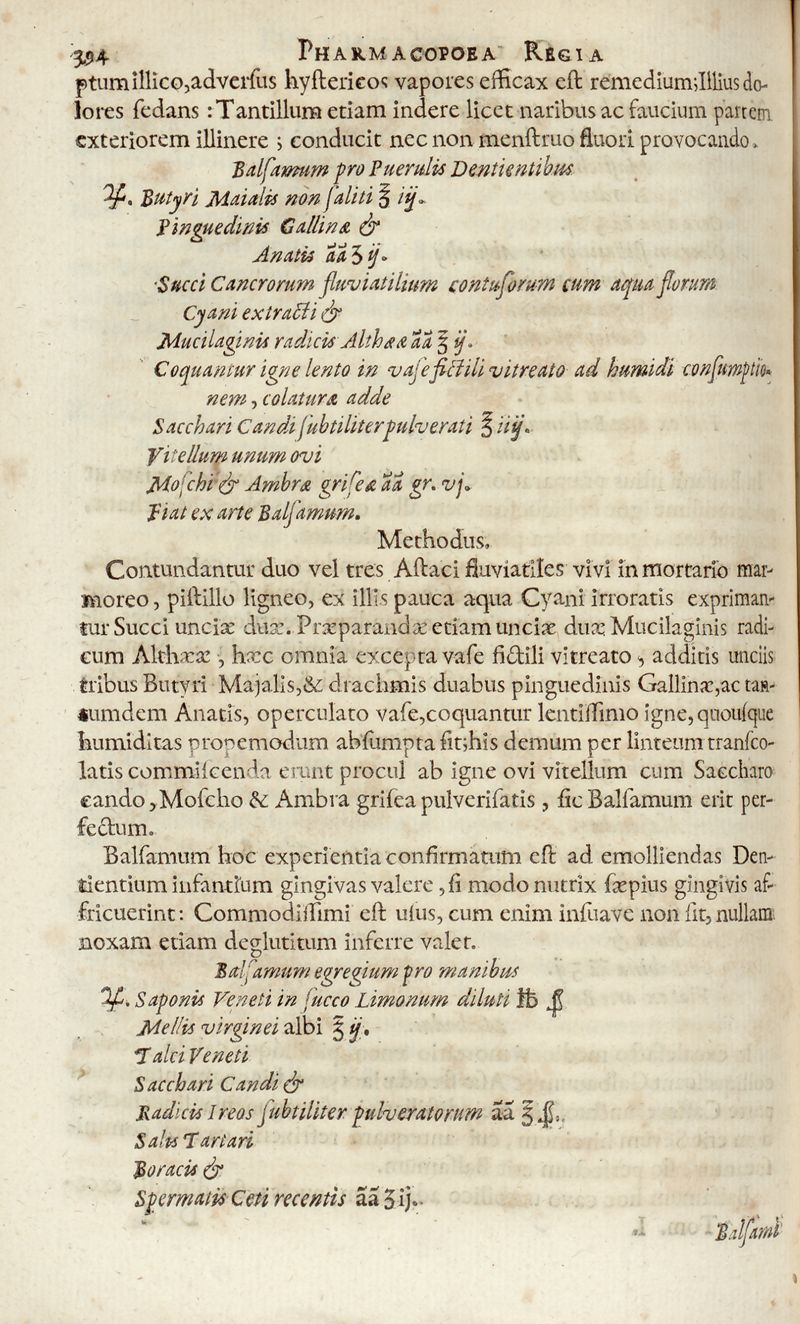 394 PHARMACOPOEA REGIA
ptum illico,adverſus hyſtericos vapores efficax eſt remedium;Illius do-
lores ſedans :Tantillum etiam indere licet naribus ac faucium partem
exteriorem illinere ; conducit nec non menſtruo fluori provocando.
Balſamum pro Puerulis Dentientibus
♃. Butyri Maialis non ſaliti ℥ iij.
Pinguedinis Gallinæ &
Anatis āā ʒ ij.
Succi Cancrorum fluviatilium contuſorum cum aqua florum
Cyani extracti &
Mucilaginis radicis Althææ āā ℥ ij.
Coquantur igne lento in vaſe fictili vitreato ad humidi conſumptio-
nem, colaturæ adde
Sacchari Candi ſubtiliter pulverati ℥ iij.
Vitellum unum ovi
Moſchi & Ambræ griſeæ āā gr. vj.
Fiat ex arte Balſamum.
Methodus.
Contundantur duo vel tres Aſtaci fluviatiles vivi in mortario mar-
moreo, piſtillo ligneo, ex illis pauca aqua Cyani irroratis expriman-
tur Succi unciæ duæ. Præparandæ etiam unciæ duæ Mucilaginis radi-
cum Althææ , hæc omnia excepta vaſe fictili vitreato , additis unciis
tribus Butyri Majalis,& drachmis duabus pinguedinis Gallinæ,ac tan-
tumdem Anatis, operculato vaſe,coquantur lentiſſimo igne,quouſque
humiditas propemodum abſumpta ſit;his demum per linteum tranſco-
latis commiſcenda erunt procul ab igne ovi vitellum cum Saccharo
cando,Moſcho & Ambra griſea pulveriſatis , ſic Balſamum erit per-
fectum.
Balſamum hoc experientia confirmatum eſt ad emolliendas Den-
tientium infantium gingivas valere ,ſi modo nutrix ſæpius gingivis af-
fricuerint: Commodiſſimi eſt uſus, cum enim inſuave non ſit, nullam
noxam etiam deglutitum inferre valet.
Balſamum egregium pro manibus
♃. Saponis Veneti in ſucco Limonum diluti ℔ ß
Mellis virginei albi ℥ ij.
Talci Veneti
Sacchari Candi &
Radicis Ireos ſubtiliter pulveratorum āā ℥ ß.
Salis Tartari
Boracis &
Spermatis Ceti recentis āā ʒ ij.
Balſami